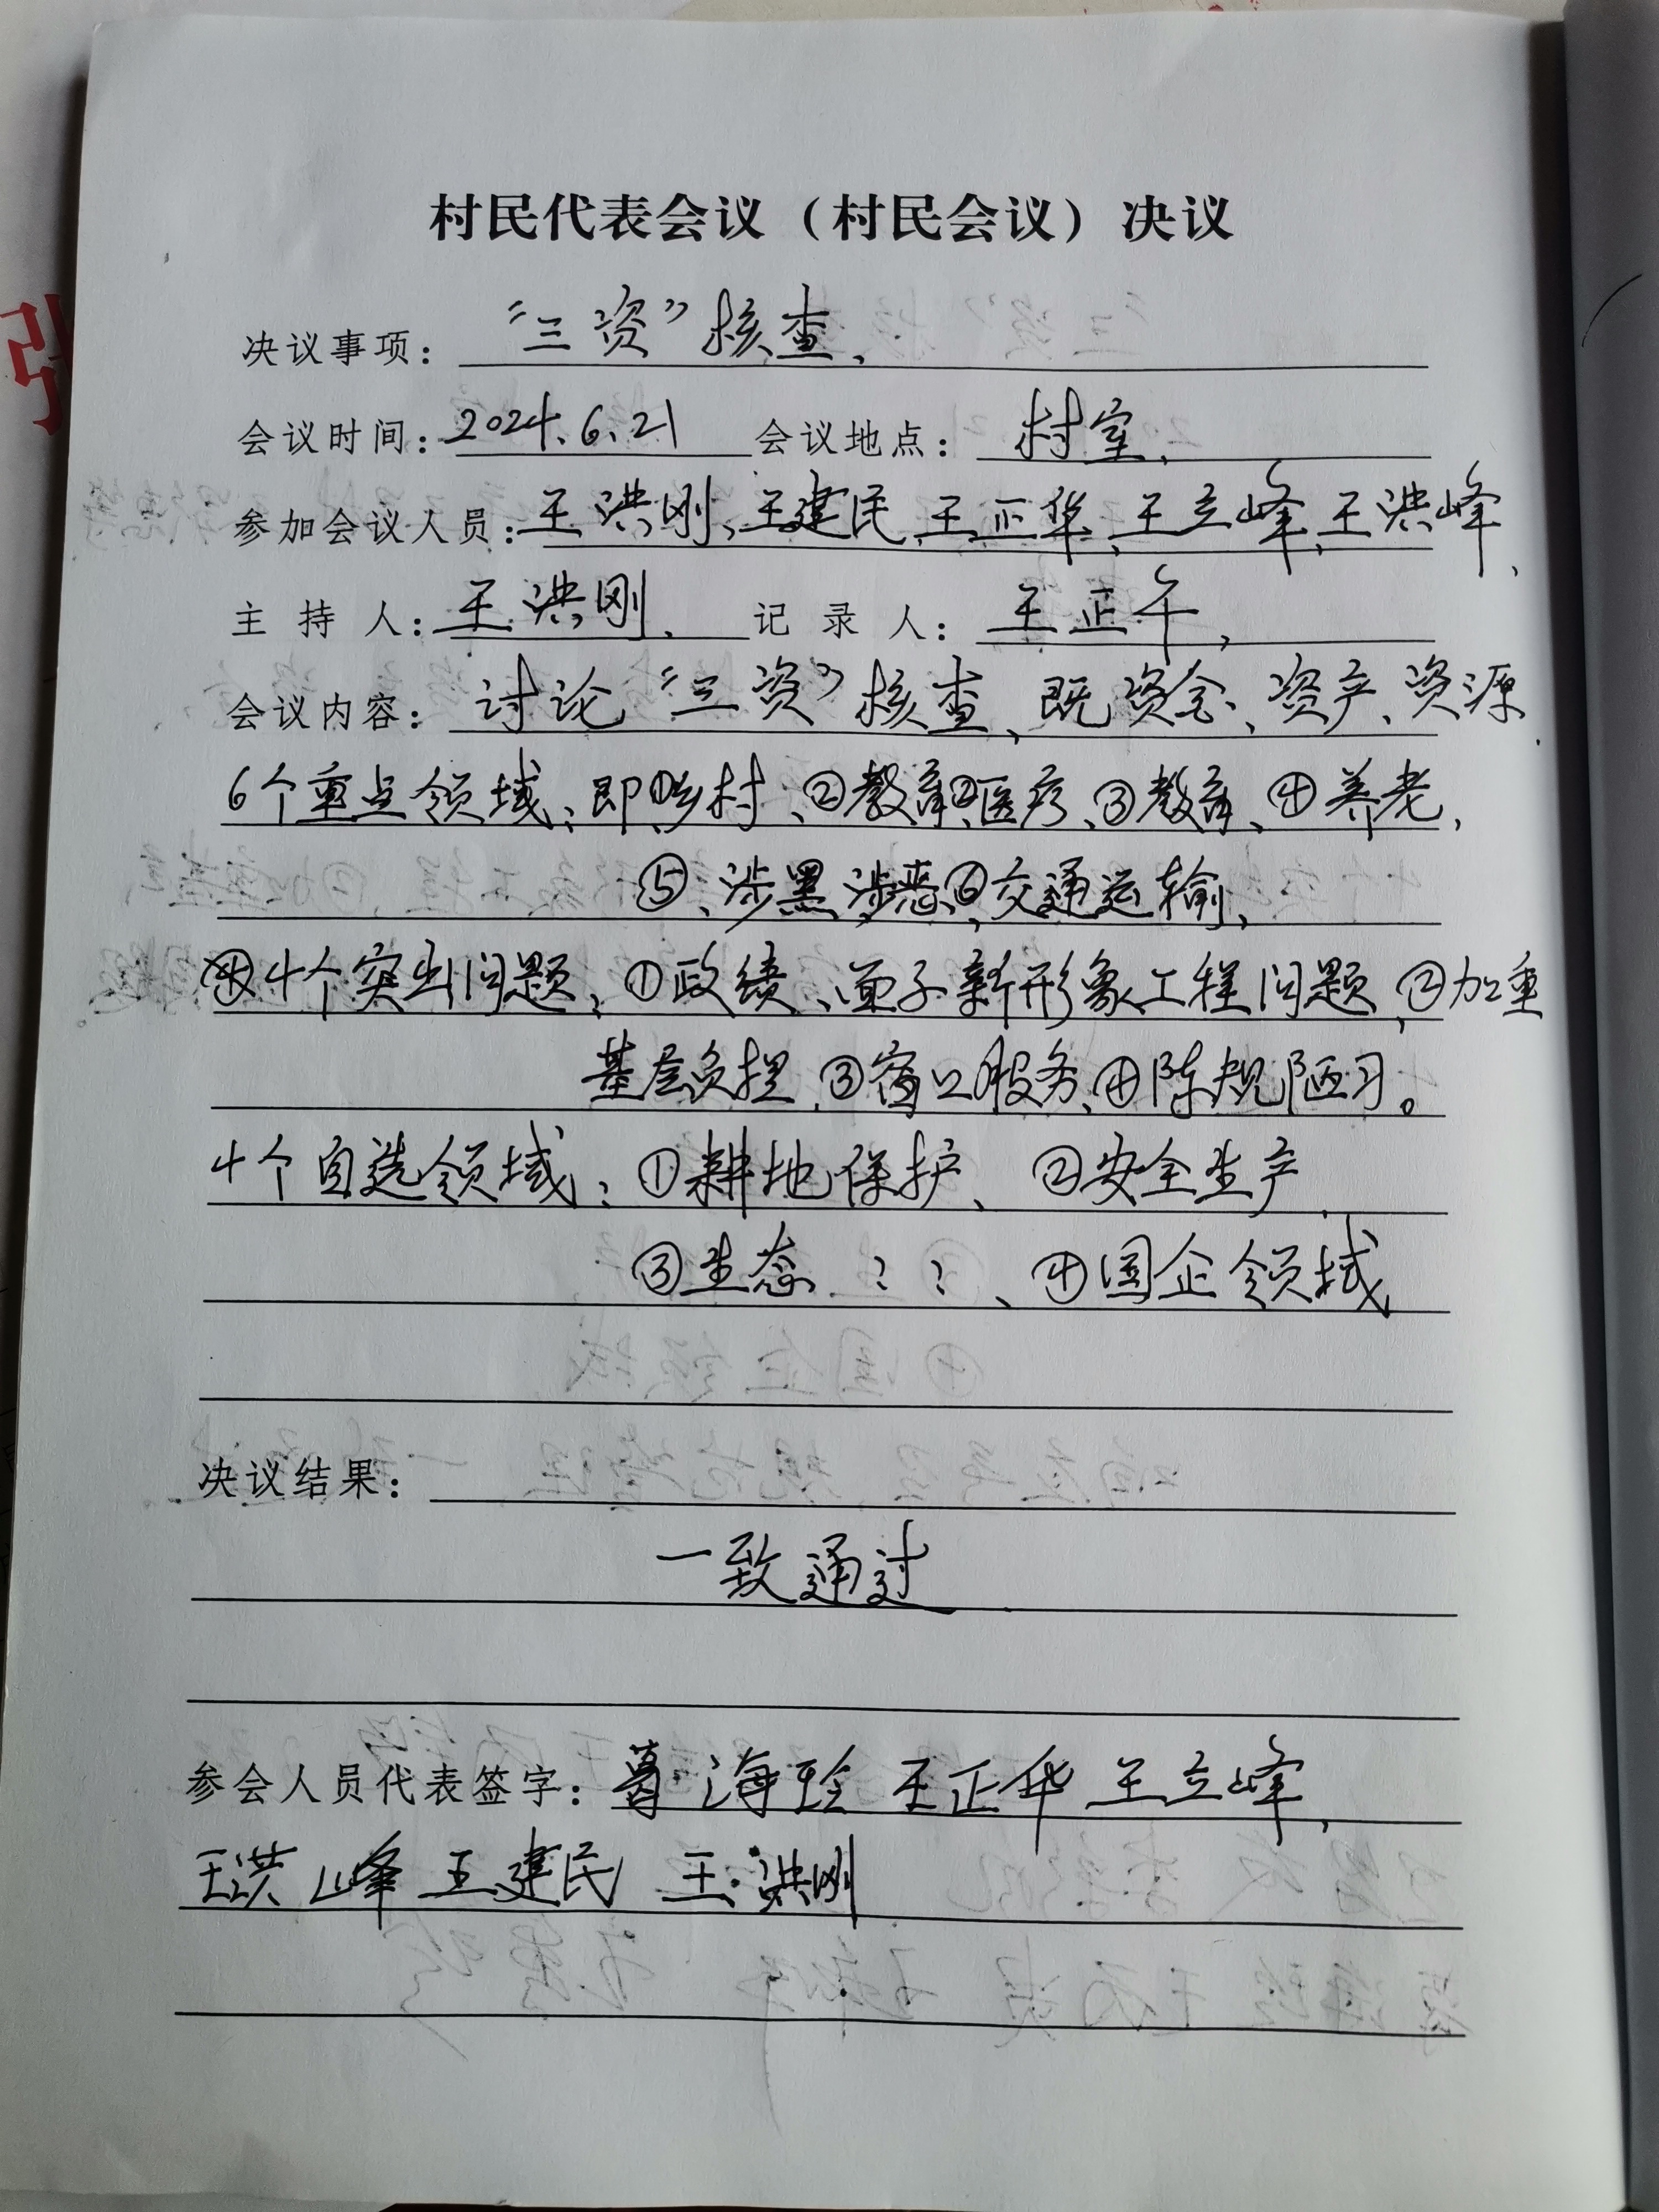 村民代表会议（村民会议）决议
决议事项：“三资”核查、
会议时间：2024.6.21 会议地点：村室、
参加会议人员：王洪刚、王建民、王正华、王立峰、王洪峰、
主持人：王洪刚、 记录人：王正午，
会议内容：讨论“三资”核查、既资金、资产、资源、
6个重点领域：即①乡村、②教育②医疗、③教育、④养老、
⑤、涉黑涉恶⑥交通运输、
④4个突出问题：①政绩、面子新形象工程问题、②加重
基层负担、③窗口服务、④陈规陋习。
4个自选领域：①耕地保护、②安全生产、
③生态？？、④国企领域
决议结果：
一致通过
参会人员代表签字：葛海玲 王正华 王立峰、
王洪峰 王建民 王洪刚
张